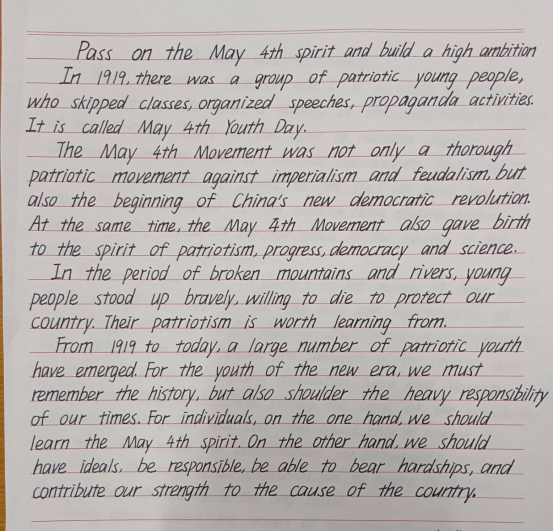 Pass on the May 4th spirit and build a high ambition
In 1919, there was a group of patriotic young people,
who skipped classes, organized speeches, propaganda activities.
It is called May 4th Youth Day.
The May 4th Movement was not only a thorough
patriotic movement against imperialism and feudalism, but
also the beginning of China's new democratic revolution.
At the same time, the May 4th Movement also gave birth
to the spirit of patriotism, progress, democracy and science.
In the period of broken mountains and rivers, young
people stood up bravely, willing to die to protect our
country. Their patriotism is worth learning from.
From 1919 to today, a large number of patriotic youth
have emerged. For the youth of the new era, we must
remember the history, but also shoulder the heavy responsibility
of our times. For individuals, on the one hand, we should
learn the May 4th spirit. On the other hand, we should
have ideals, be responsible, be able to bear hardships, and
contribute our strength to the cause of the country.